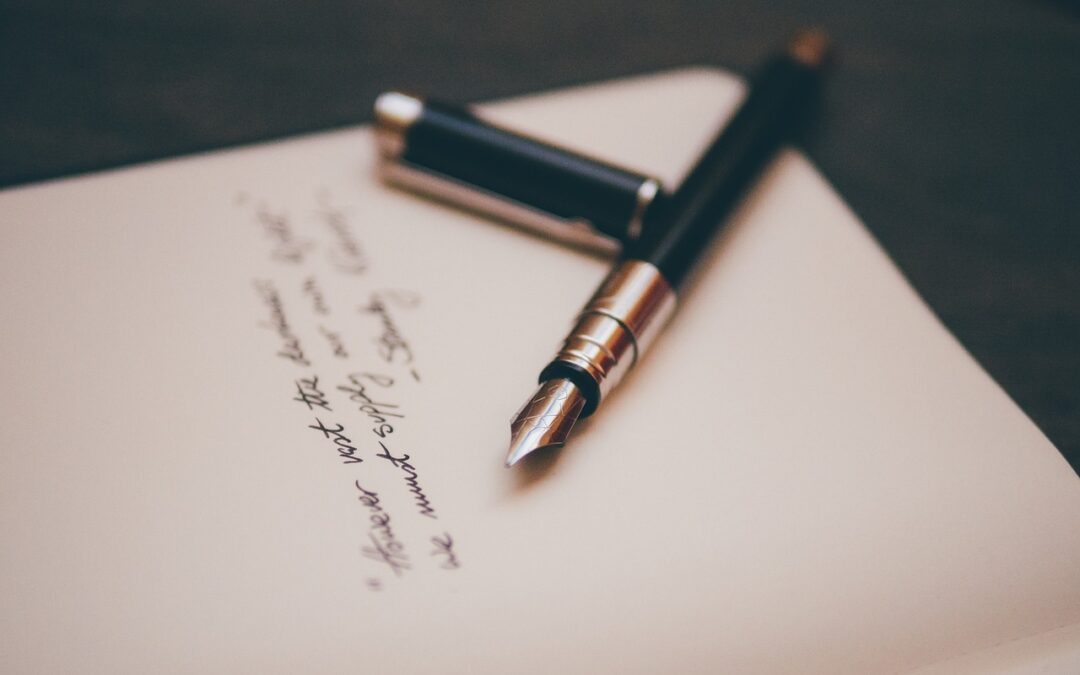 "However vast the darkness
we must supply our own light"
- Stanley